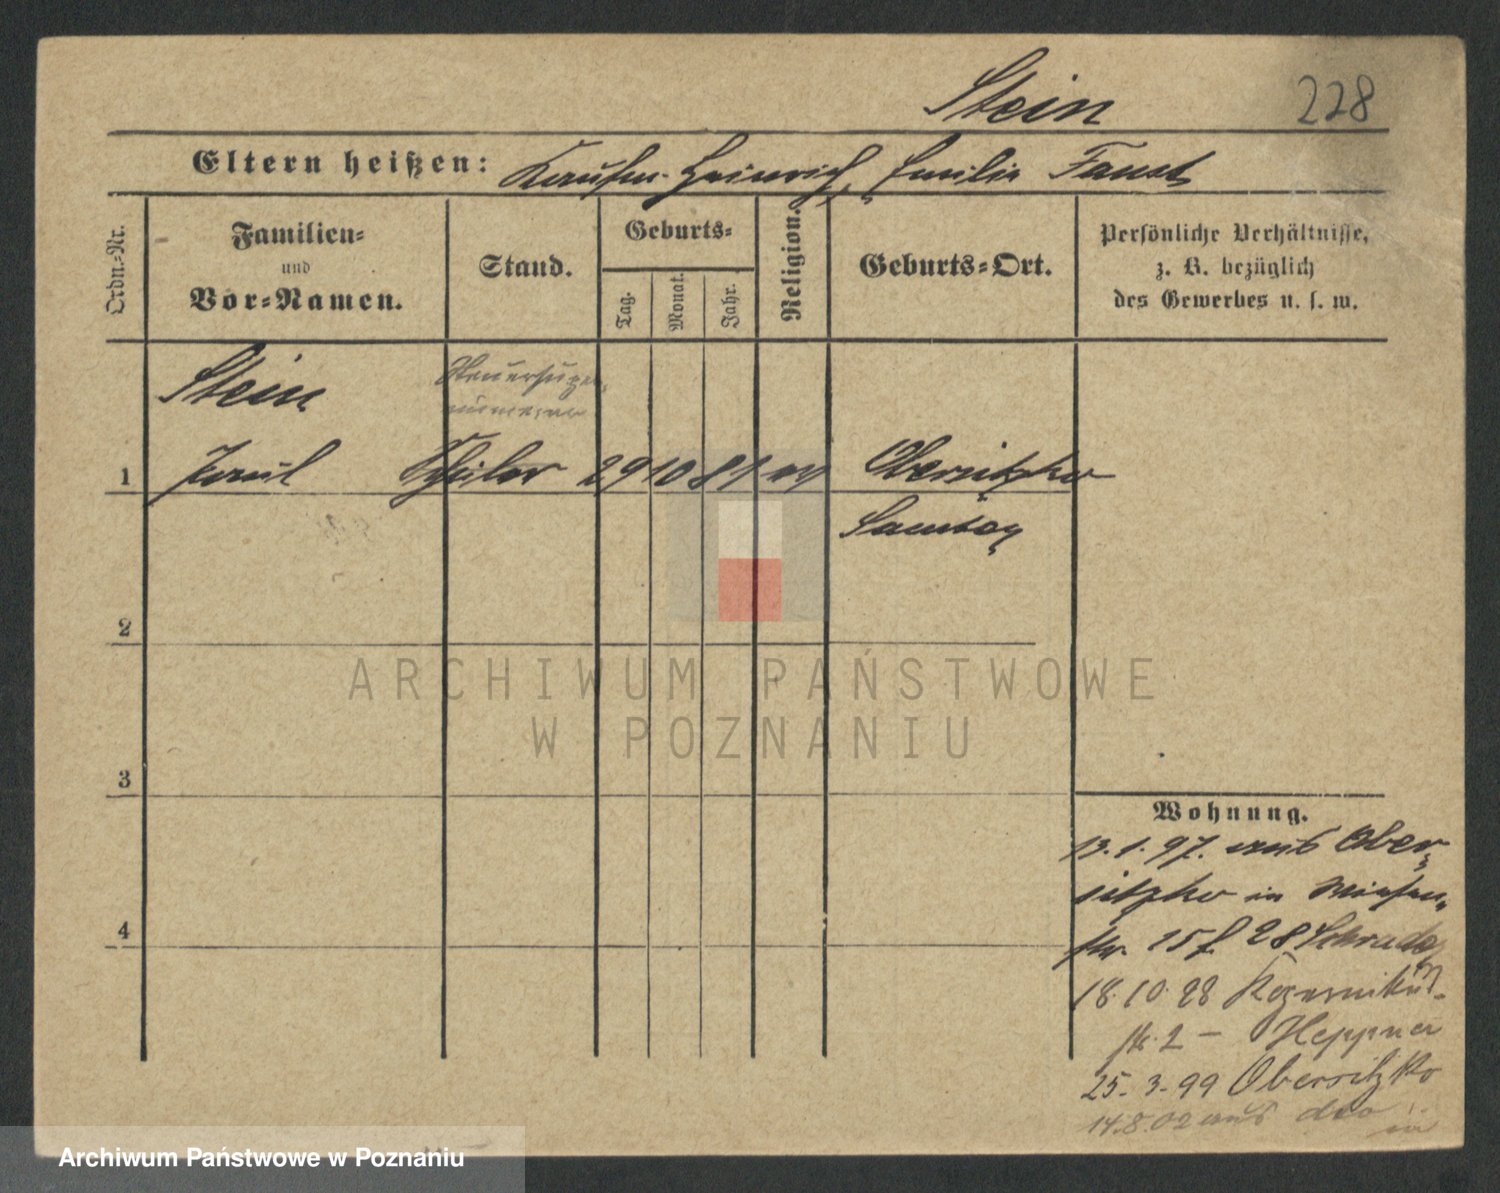 Stein
228
Eltern heißen: Kaufm. Heinrich, Emilie Faust
Ordn.-Nr.
Familien-
und
Vor-Namen.
Stand.
Geburts-
Tag.
Monat.
Jahr.
Religion.
Geburts-Ort.
Persönliche Verhältnisse,
z. B. bezüglich
des Gewerbes u. s. w.
Stein
1 Paul Schüler 29 10 81 Obersitzko
Samter
2
3
4
Wohnung.
13.1.97. aus Ober-
sitzko in Wiesen-
str. 15 f. 28
18.10.98
str. 2 — Heppner
25.3.99 Obersitzko
14.8.02 aus dto in
ARCHIWUM PAŃSTWOWE
W POZNANIU
Archiwum Państwowe w Poznaniu